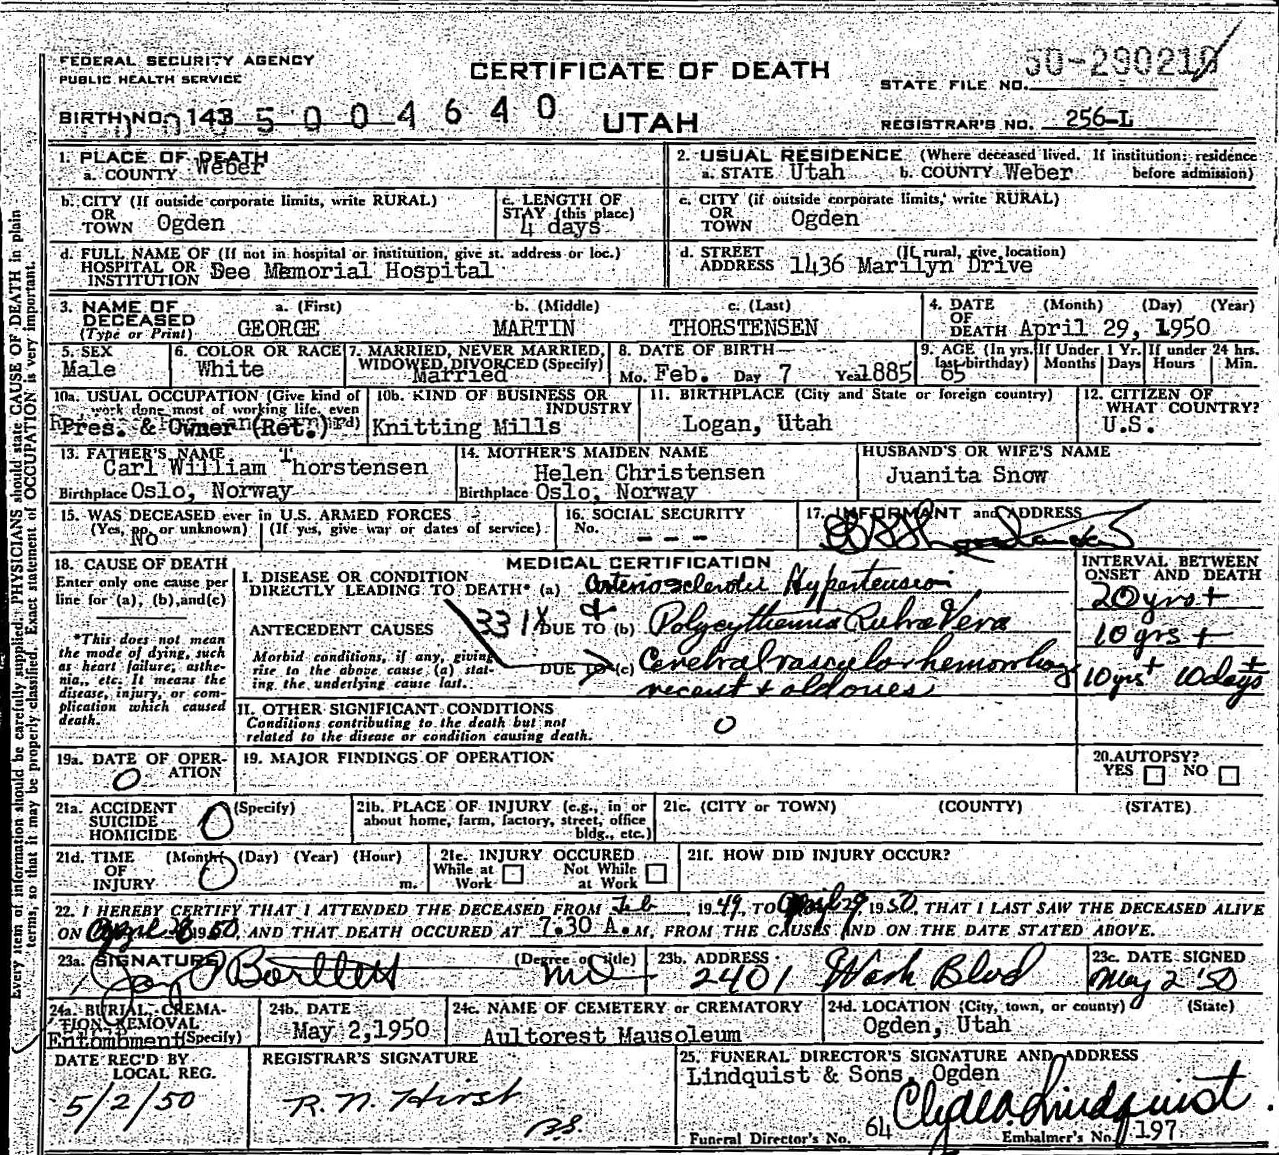 FEDERAL SECURITY AGENCY
PUBLIC HEALTH SERVICE
CERTIFICATE OF DEATH
STATE FILE NO. 50-290219
BIRTH NO. 143 5004640
UTAH
REGISTRAR'S NO. 256-L
1. PLACE OF DEATH
a. COUNTY Weber
2. USUAL RESIDENCE (Where deceased lived. If institution: residence before admission)
a. STATE Utah b. COUNTY Weber
b. CITY (If outside corporate limits, write RURAL)
OR
TOWN Ogden
c. LENGTH OF
STAY (this place)
4 days
c. CITY (if outside corporate limits, write RURAL)
OR
TOWN Ogden
d. FULL NAME OF (If not in hospital or institution, give st. address or loc.)
HOSPITAL OR
INSTITUTION Dee Memorial Hospital
d. STREET (If rural, give location)
ADDRESS 1436 Marilyn Drive
3. NAME OF DECEASED
(Type or Print)
a. (First) b. (Middle) c. (Last)
GEORGE MARTIN THORSTENSEN
4. DATE OF DEATH (Month) (Day) (Year)
April 29, 1950
5. SEX
Male
6. COLOR OR RACE
White
7. MARRIED, NEVER MARRIED,
WIDOWED, DIVORCED (Specify)
Married
8. DATE OF BIRTH
Mo. Feb. Day 7 Year 1885
9. AGE (In yrs. last birthday)
65
If Under 1 Yr.
Months Days
If under 24 hrs.
Hours Min.
10a. USUAL OCCUPATION (Give kind of
work done most of working life, even
Pres. & Owner (Ret.)
10b. KIND OF BUSINESS OR
INDUSTRY
Knitting Mills
11. BIRTHPLACE (City and State or foreign country)
Logan, Utah
12. CITIZEN OF
WHAT COUNTRY?
U.S.
13. FATHER'S NAME
Carl William Thorstensen
Birthplace Oslo, Norway
14. MOTHER'S MAIDEN NAME
Helen Christensen
Birthplace Oslo, Norway
HUSBAND'S OR WIFE'S NAME
Juanita Snow
15. WAS DECEASED ever in U.S. ARMED FORCES
(Yes, no, or unknown) (If yes, give war or dates of service)
No
16. SOCIAL SECURITY
No. - - -
17. INFORMANT and ADDRESS
18. CAUSE OF DEATH
Enter only one cause per
line for (a), (b), and (c)
*This does not mean
the mode of dying, such
as heart failure, asthe-
nia, etc. It means the
disease, injury, or com-
plication which caused
death.
MEDICAL CERTIFICATION
I. DISEASE OR CONDITION
DIRECTLY LEADING TO DEATH* (a) Arteriosclerotic Hypertension
&
331X
ANTECEDENT CAUSES DUE TO (b) Polycythemia Rubra Vera
Morbid conditions, if any, giving
rise to the above cause (a) stat-
ing the underlying cause last.
DUE TO (c) Cerebral vascular hemorrhage
recent + old ones
INTERVAL BETWEEN
ONSET AND DEATH
20 yrs +
10 yrs +
10 yrs + 10 days ±
II. OTHER SIGNIFICANT CONDITIONS
Conditions contributing to the death but not
related to the disease or condition causing death.
0
19a. DATE OF OPER-
ATION
0
19. MAJOR FINDINGS OF OPERATION
20. AUTOPSY?
YES NO
21a. ACCIDENT (Specify)
SUICIDE
HOMICIDE
0
21b. PLACE OF INJURY (e.g., in or
about home, farm, factory, street, office
bldg., etc.)
21c. (CITY or TOWN) (COUNTY) (STATE)
21d. TIME (Month) (Day) (Year) (Hour)
OF
INJURY 0 m.
21e. INJURY OCCURED
While at Work
Not While at Work
21f. HOW DID INJURY OCCUR?
22. I HEREBY CERTIFY THAT I ATTENDED THE DECEASED FROM Feb, 1949, TO April 29 1950, THAT I LAST SAW THE DECEASED ALIVE
ON April 28 1950, AND THAT DEATH OCCURED AT 7:30 A.M, FROM THE CAUSES AND ON THE DATE STATED ABOVE.
23a. SIGNATURE (Degree or title)
Jay P Bartlett MD
23b. ADDRESS
2401 Wash Blvd
23c. DATE SIGNED
May 2 '50
24a. BURIAL, CREMA-
TION, REMOVAL
Entombment (Specify)
24b. DATE
May 2, 1950
24c. NAME OF CEMETERY or CREMATORY
Aultorest Mausoleum
24d. LOCATION (City, town, or county) (State)
Ogden, Utah
DATE REC'D BY
LOCAL REG.
5/2/50
REGISTRAR'S SIGNATURE
R. N. Hirst
25. FUNERAL DIRECTOR'S SIGNATURE AND ADDRESS
Lindquist & Sons, Ogden
Clyde A. Lindquist
Funeral Director's No. 64 Embalmer's No. 197
Every item of information should be carefully supplied. PHYSICIANS should state CAUSE OF DEATH in plain
terms, so that it may be properly classified. Exact statement of OCCUPATION is very important.